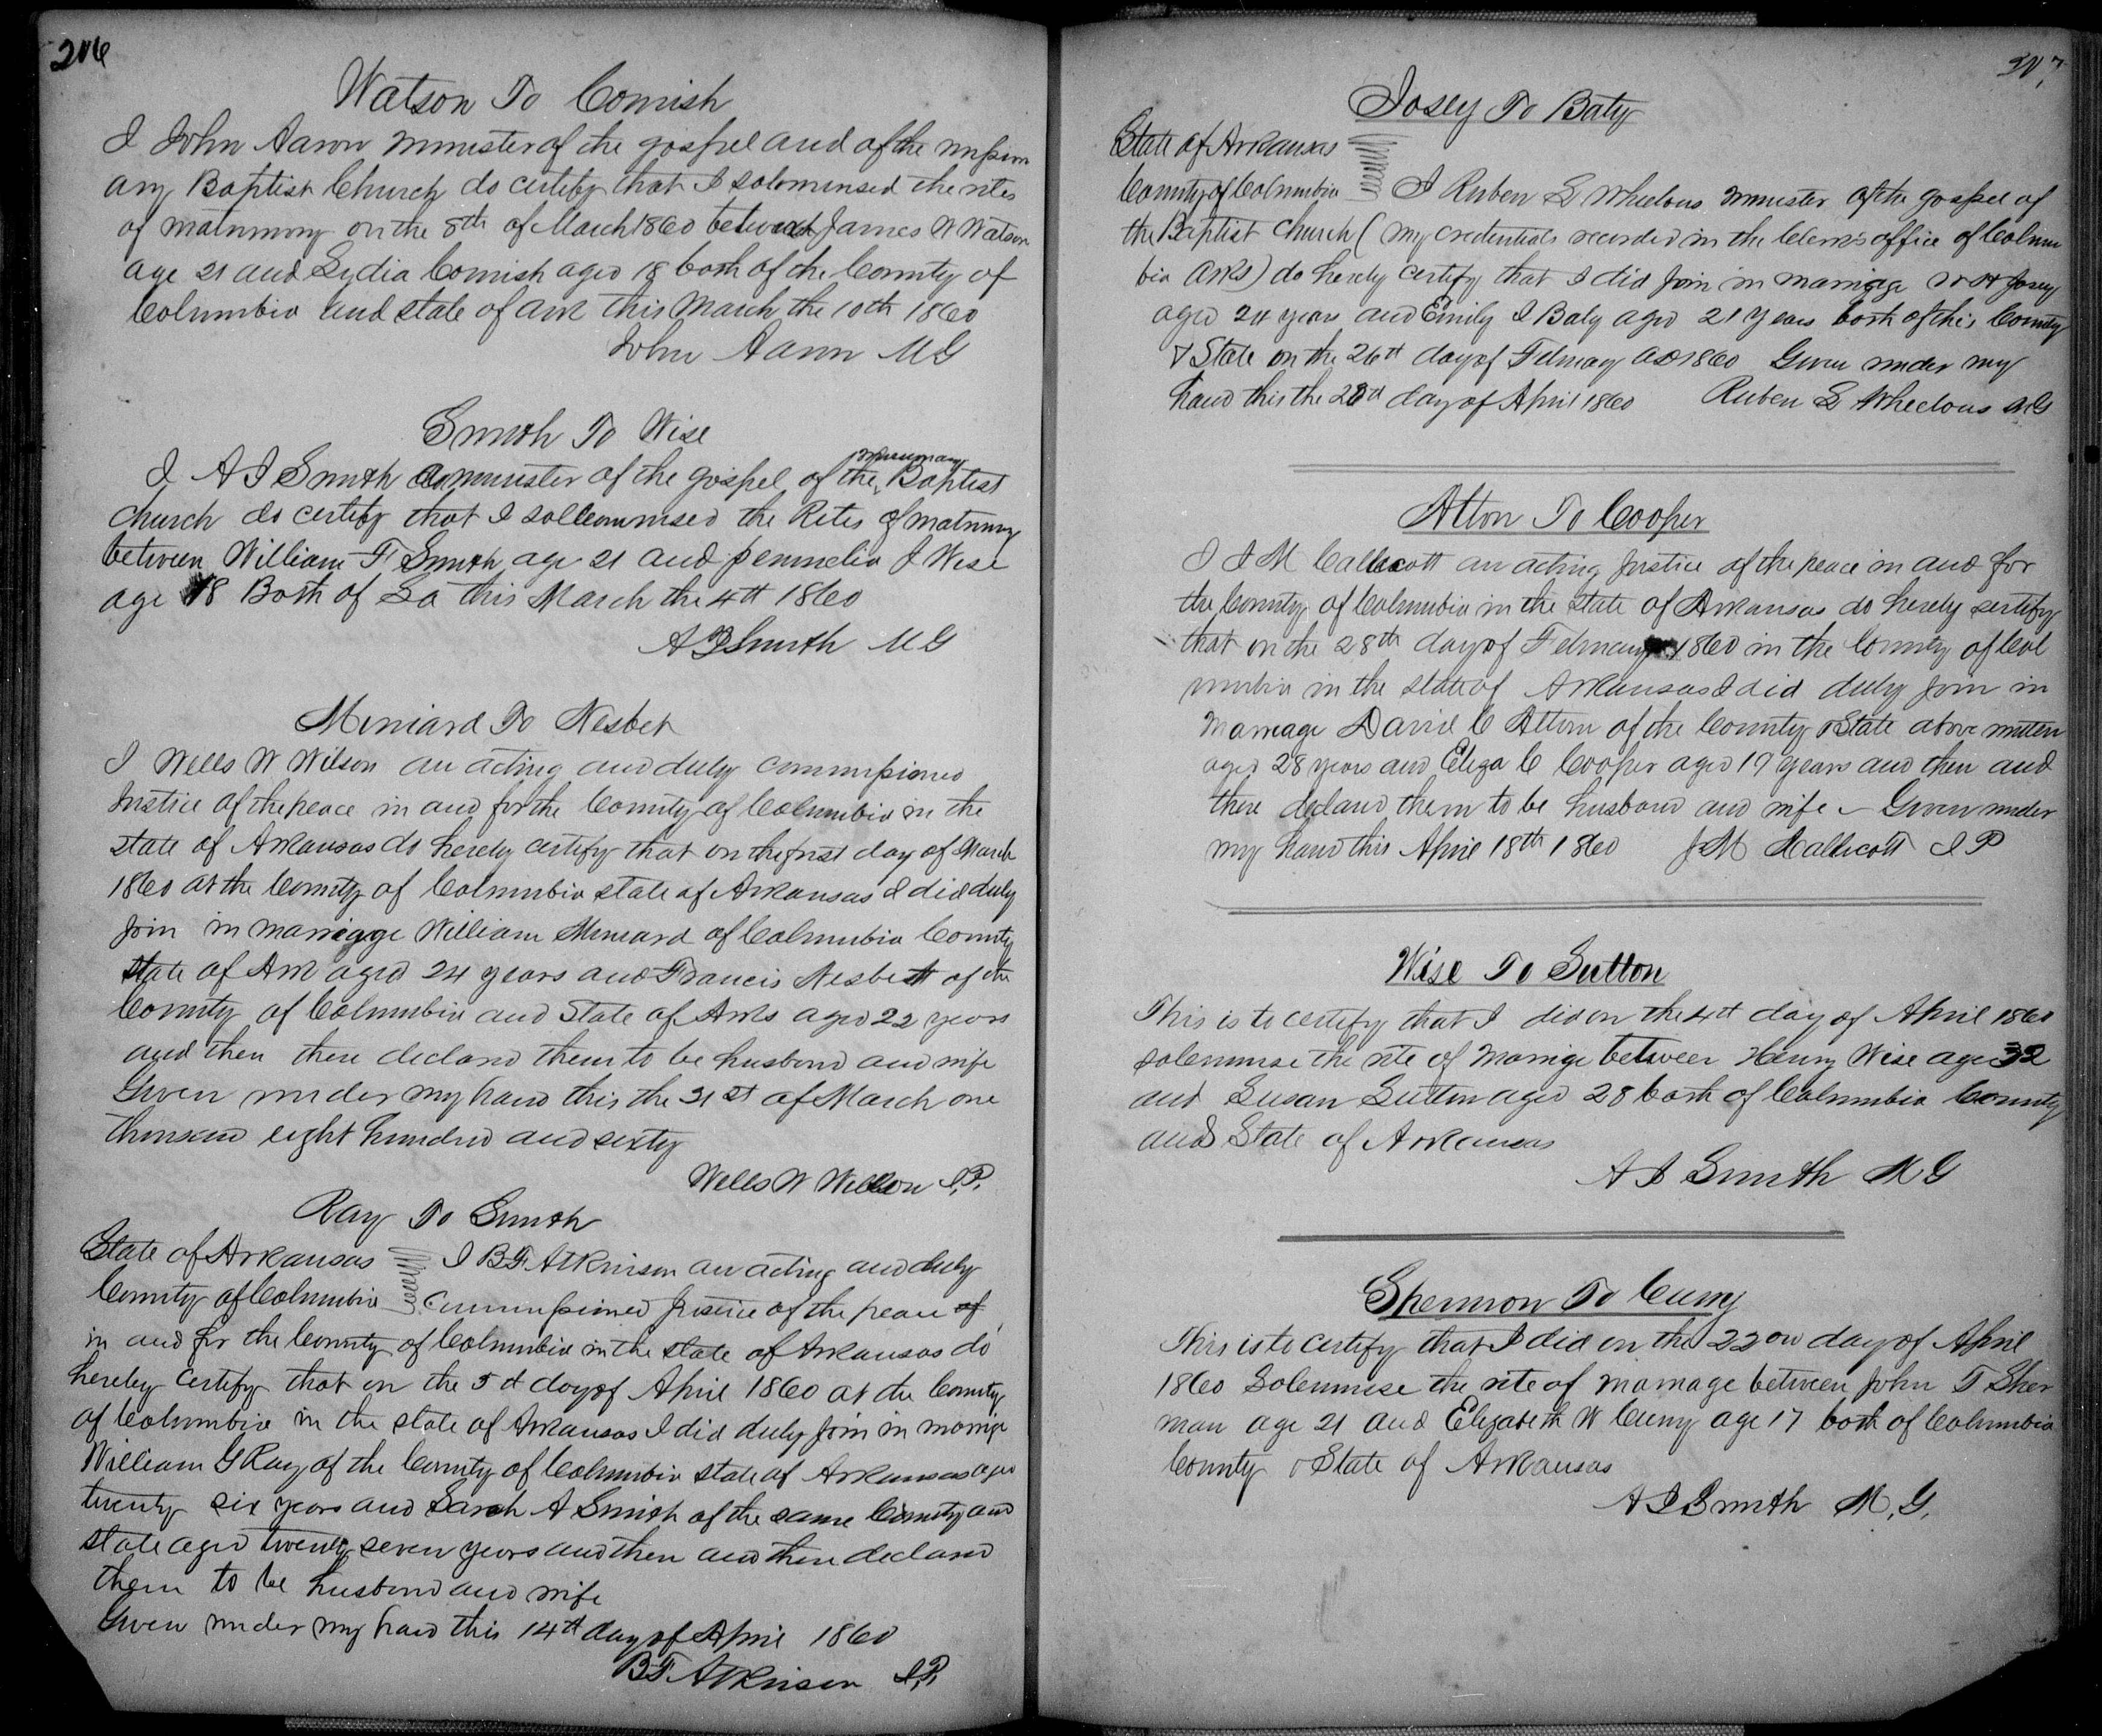 206
Watson To Cornish
I John Aaron minister of the gospel and of the mission
ary Baptist Church do certify that I solominsed the rites
of matrimony on the 8th of March 1860 betwext James W Watson
age 21 and Lydia Cornish aged 18 both of the County of
Columbia and state of Ark this March the 10th 1860
John Aaron M G
Smith To Wise
I A J Smith a minister of the gospel of the missionary Baptist
church do certify that I solleomnised the Rites of matrimony
between William F Smith age 21 and J Wise
age 18 Both of La this March the 4th 1860
A J Smith M G
Miniard To Nesbet
I Wells W Wilson an acting and duly commissioned
Justice of the peace in and for the County of Columbia in the
state of Arkansas do hereby certify that on the first day of March
1860 at the County of Columbia state of Arkansas I did duly
join in marriage William Miniard of Columbia County
state of Ark aged 24 years and Francis Nesbett of the
County of Columbia and State of Arks aged 22 years
and then there declard them to be husband and wife
Given under my hand this the 21st of March one
thousand eight hundred and sixty
Wells W Wilson J.P.
Ray To Smith
State of Arkansas I B F Atkinson an acting and duly
County of Columbia Commissioned Justice of the peace of
in and for the County of Columbia in the state of Arkansas do
hereby certify that on the 5th day of April 1860 at the County
of Columbia in the state of Arkansas I did duly join in marrige
William G Ray of the County of Columbia state of Arkansas aged
twenty six years and Sarah A Smith of the same County and
state aged twenty seven years and then and there declard
them to be husband and wife
Given under my hand this 14th day of April 1860
B.F. Atkinson J.P.
207
Josey To Baty
State of Arkansas
County of Columbia I Ruben S Whelous minister of the gospel of
the Baptist Church (my credentials recorded in the Clerks office of Colum
bia Arks) do hereby certify that I did join in marriage Josey
aged 24 years and Emily J Baty aged 21 years both of this County
& State on the 26th day of February AD 1860 Given under my
hand this the day of April 1860 Ruben S Whelous MG
Atton To Cooper
I J M Callicott an acting Justice of the peace in and for
the County of Columbia in the State of Arkansas do hereby sertify
that on the 28th day of February 1860 in the County of Col
umbia in the state of Arkansas I did duly join in
Marreage David C Attom of the County & State above writen
aged 28 years and Eliza C Cooper aged 19 years and then and
there declard them to be husband and wife Given under
my hand this April 18th 1860 J M Callicott J P
Wise To Sutton
This is to certify that I did on the 4th day of April 1860
solemnise the rite of marrige between Henry Wise age 32
and Susan Sutton aged 28 both of Columbia County
and State of Arkansas
A J Smith M G
Shermon To Curry
This is to certify that I did on the 22on day of April
1860 Solemnise the rite of marriage between John T Sher
man age 21 and Elizabeth W Curry age 17 both of Columbia
County & State of Arkansas
A J Smith M.G.